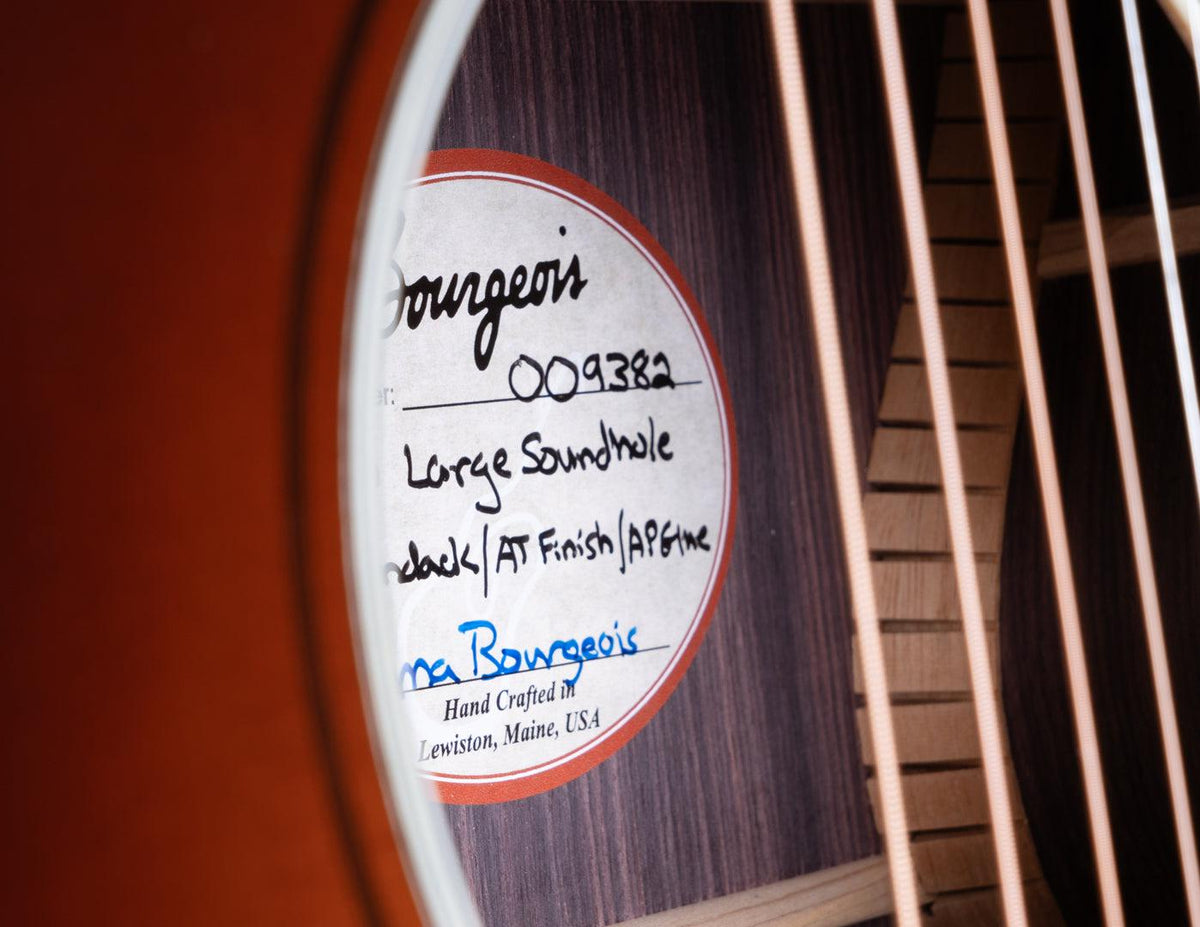 Bourgeois
er: 009382
Large Soundhole
ndack/AT Finish/AP Glue
na Bourgeois
Hand Crafted in
Lewiston, Maine, USA